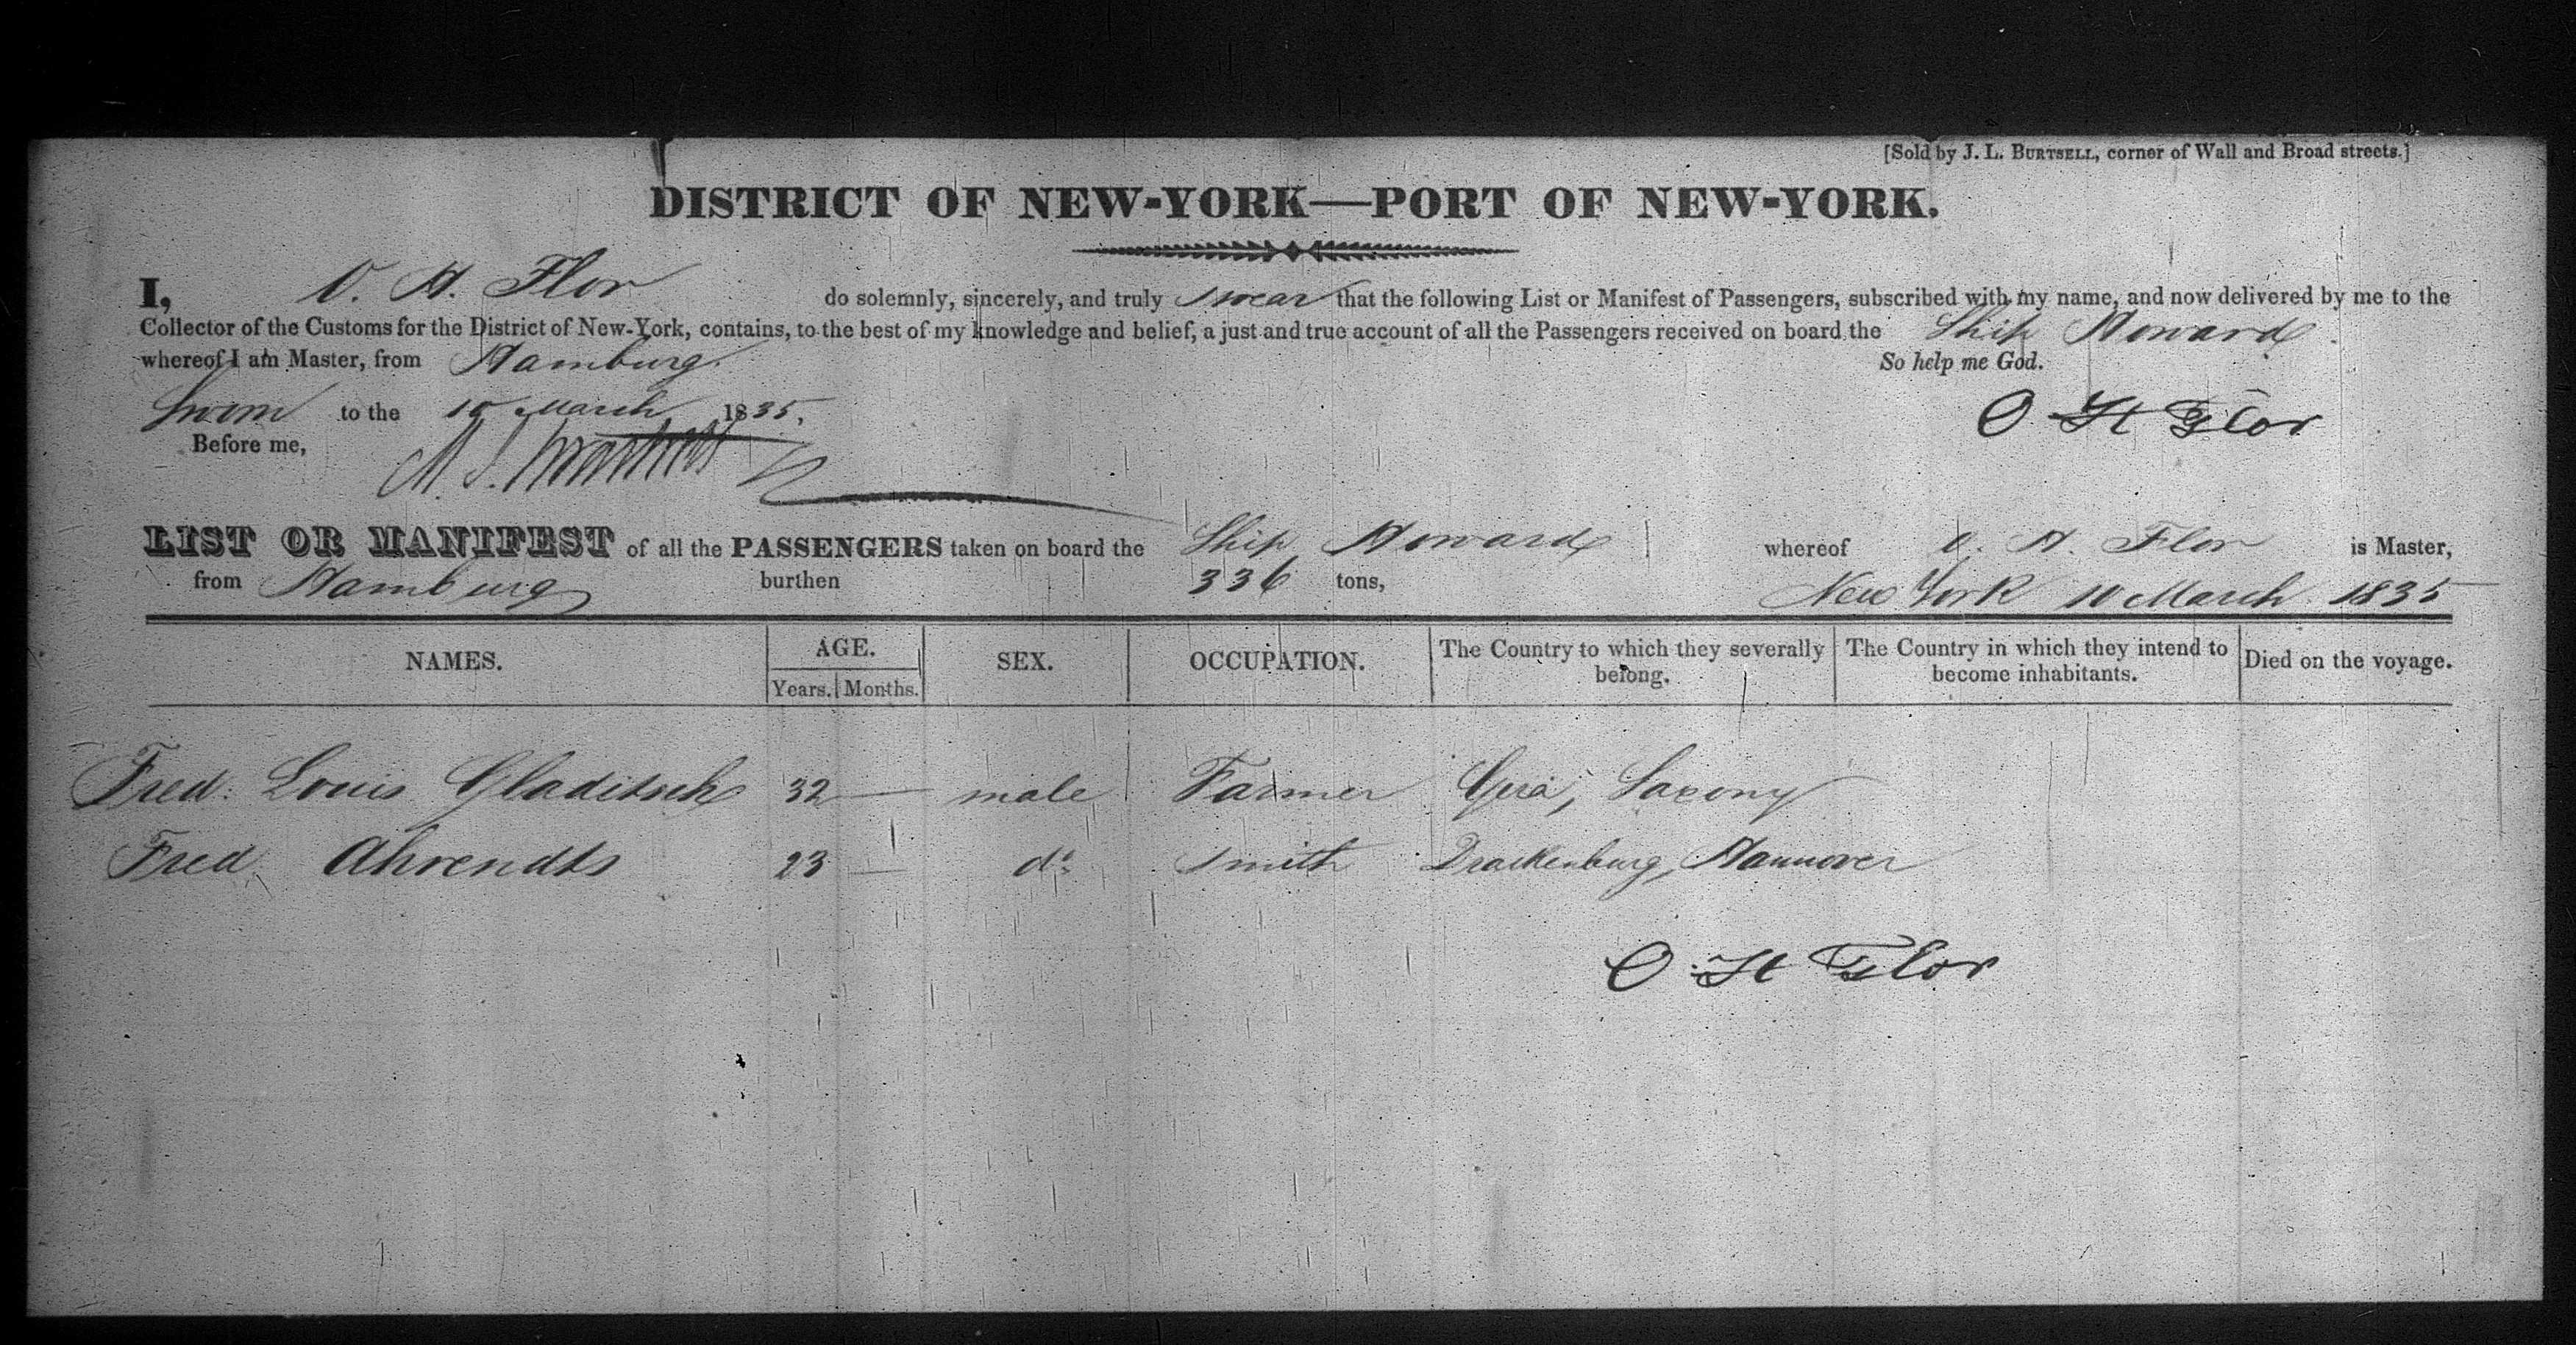 [Sold by J. L. BURTSELL, corner of Wall and Broad streets.]
DISTRICT OF NEW-YORK—PORT OF NEW-YORK.
I, O. H. Flor do solemnly, sincerely, and truly swear that the following List or Manifest of Passengers, subscribed with my name, and now delivered by me to the
Collector of the Customs for the District of New-York, contains, to the best of my knowledge and belief, a just and true account of all the Passengers received on board the Ship Howard
whereof I am Master, from Hamburg. So help me God.
Sworn to the 10 March 1835, O H Flor
Before me,
LIST OR MANIFEST of all the PASSENGERS taken on board the Ship Howard whereof O. H. Flor is Master,
from Hamburg burthen 336 tons, New York 10 March 1835
NAMES. AGE. Years. Months. SEX. OCCUPATION. The Country to which they severally belong. The Country in which they intend to become inhabitants. Died on the voyage.
Fred. Louis Gladitsch 32 — male Farmer Gera, Saxony
Fred Ahrendts 23 — do Smith Drackenburg, Hannover
O H Flor